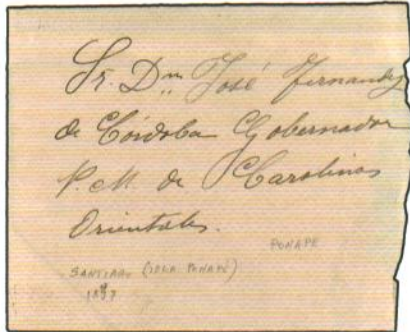 Sr. Dn. José Fernandez
de Córdoba Gobernador
P. M. de Carolinas
Orientales.
PONAPE
SANTIAGO (ISLA PONAPÉ)
1887